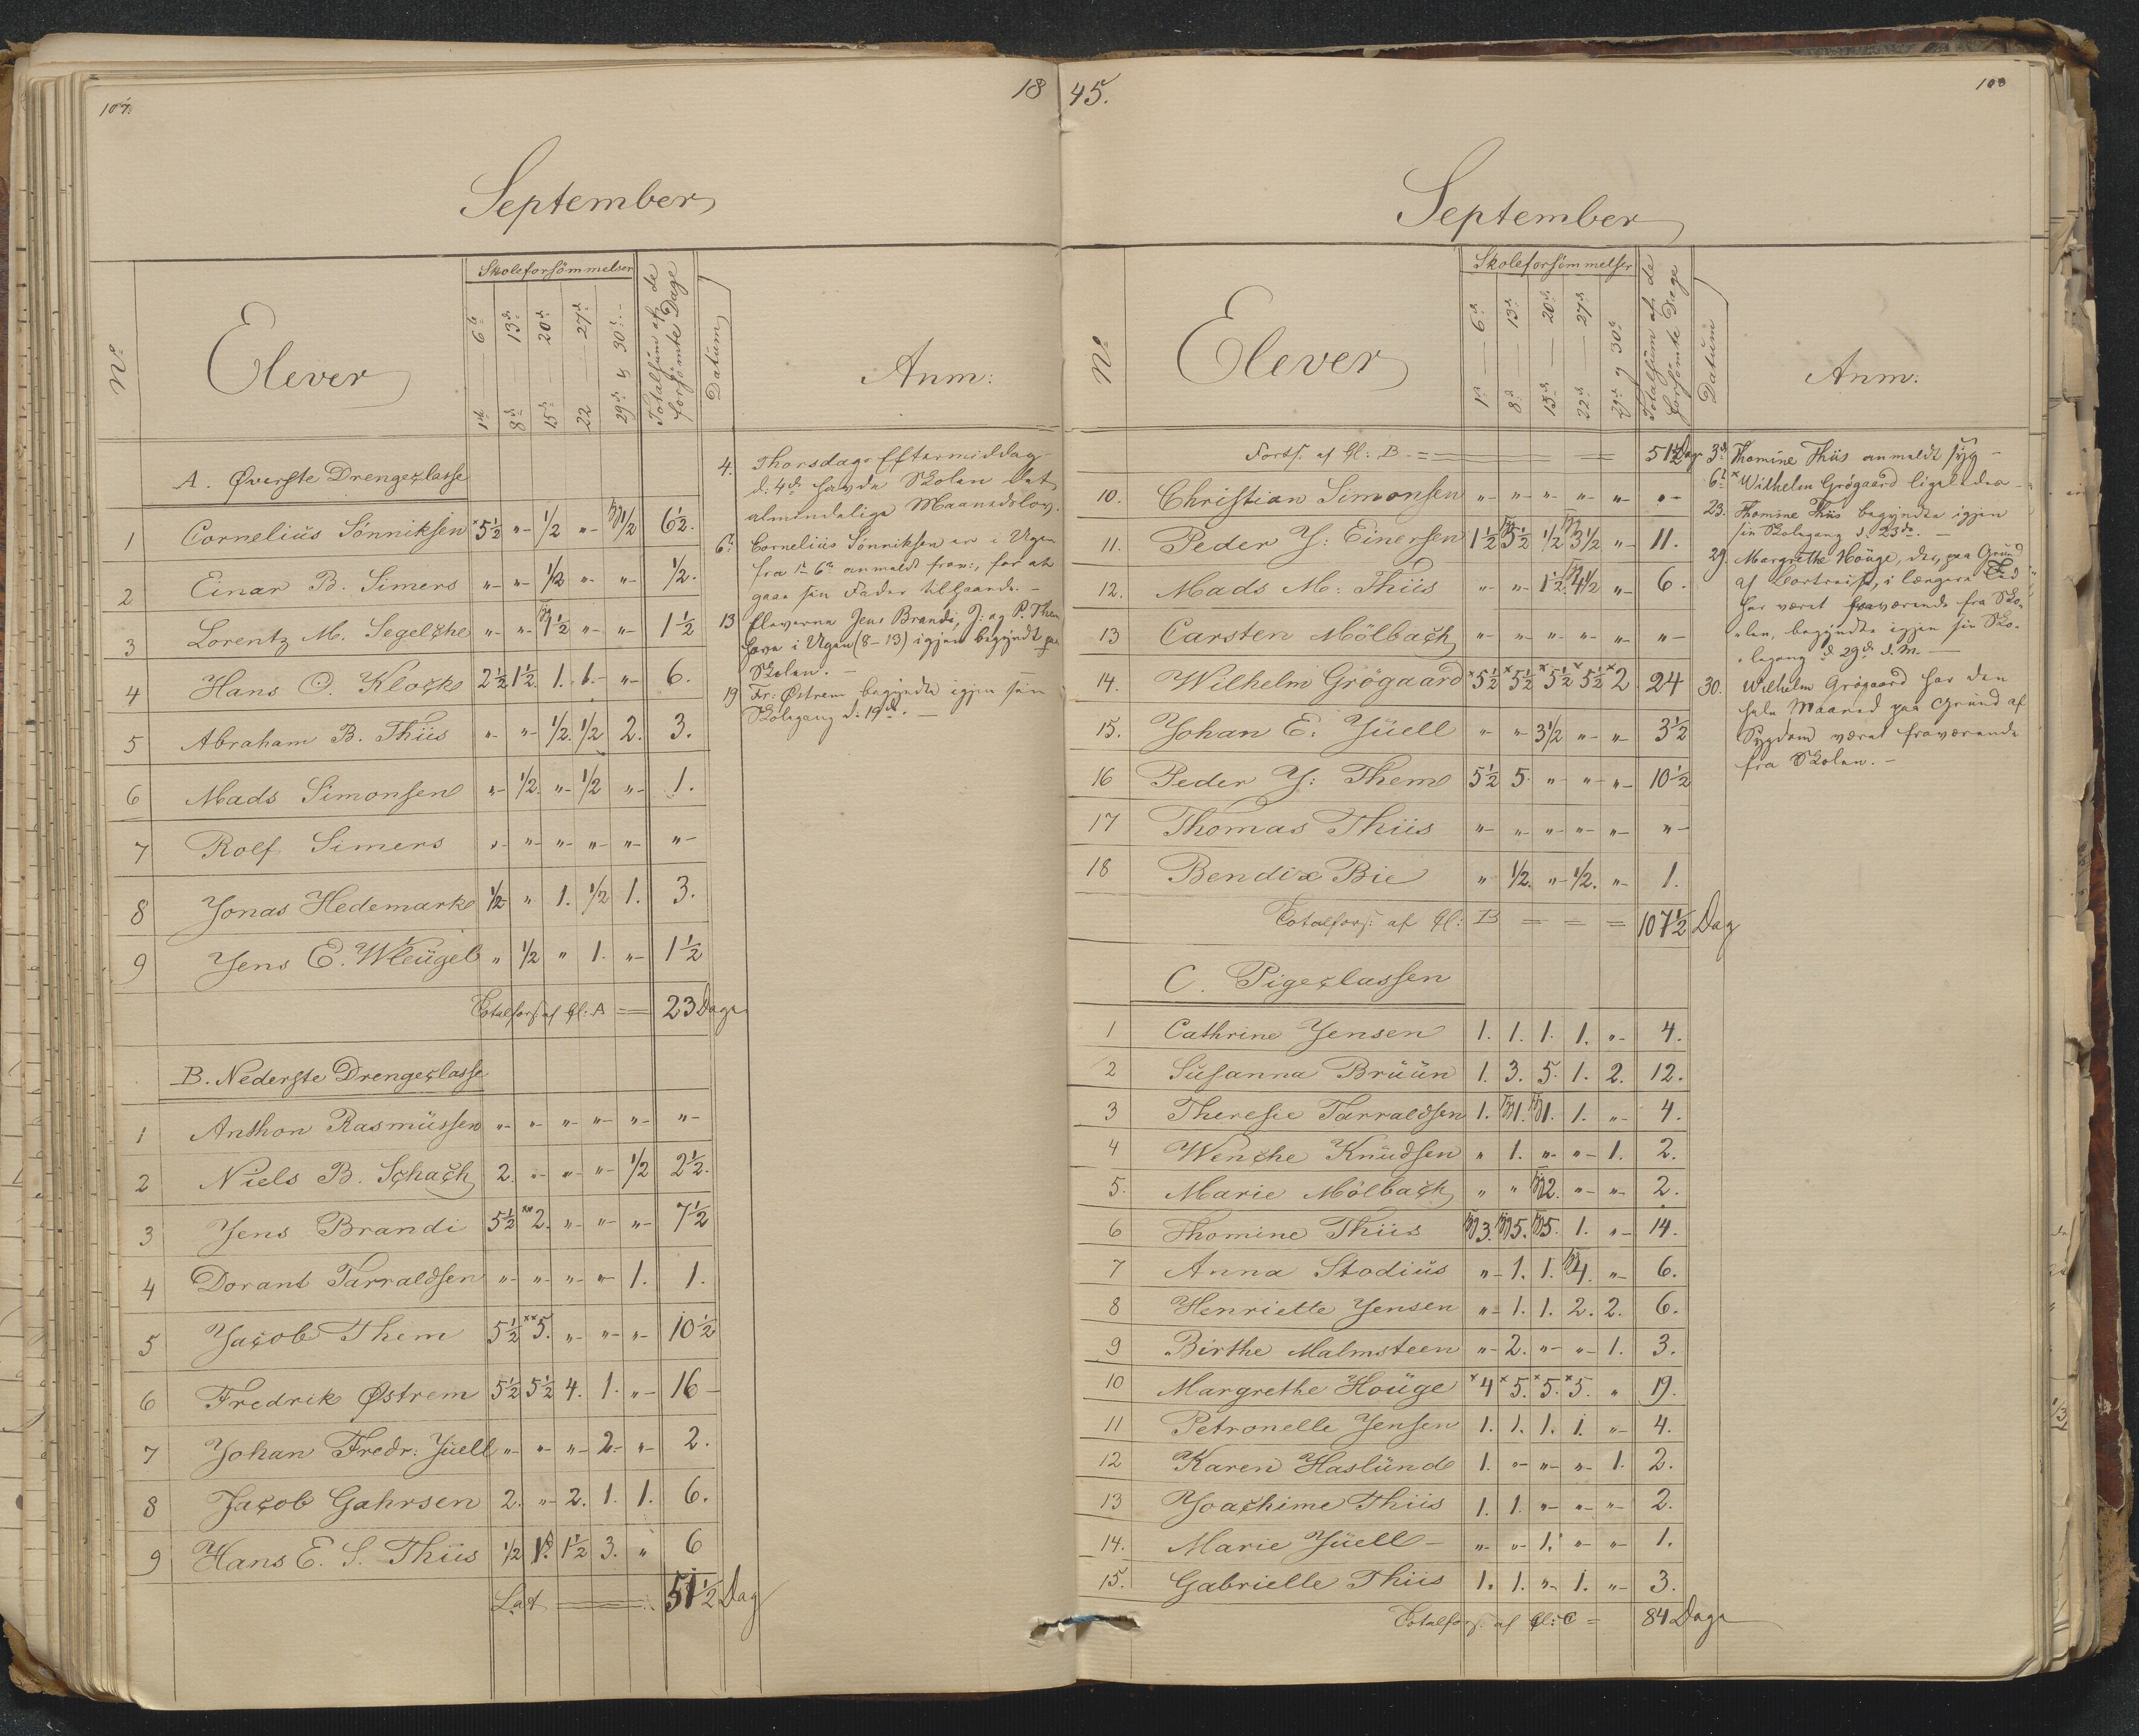 107.
18
September
Nº
Elever
Skoleforsömmelser
1ste 6te
8de 13de
15de 20de
22 27de
29de & 30te
Totalsum af de forsömte Dage
Datum
Anm:
A. Øverste Drengeclasse
1 Cornelius Sönniksen ×5½ "- ½ "- Syg 1½ 6½.
2 Einar B. Simers "- "- ½ "- "- ½.
3 Lorentz M. Segelcke "- "- Syg 1½ "- "- 1½
4 Hans C. Klock 2½ 1½ 1. 1.- "- 6.
5 Abraham B. Thiis "- "- ½. ½ 2. 3.
6 Mads Simonsen "- ½. "- ½ "- 1.
7 Rolf Simers "- "- "- "- "- "-
8 Jonas Hedemark ½ " 1. ½ 1. 3.
9 Jens E. Wleügel " ½ " 1. "- 1½
Totalfors. af Cl: A = 23 Dage
B. Nederste Drengeclasse
1 Anthon Rasmüssen "- "- "- "- "- "-
2 Niels B. Schach 2. "- "- "- ½ 2½.
3 Jens Brandi 5½ ××2. "- "- "- 7½
4 Dorant Tarraldsen "- "- "- "- 1. 1.
5 Jacob Them 5½ ××5. "- "- "- 10½
6 Fredrik Østrem 5½ 5½ 4. 1. "- 16-
7 Johan Fredr: Jüell "- "- "- 2- "- 2.
8 Jacob Gahrsen 2. "- 2. 1. 1. 6.
9 Hans E. S. Thiis ½ 1. 1½ 3. " 6
Lat. = 51½ Dag
4. Thorsdags Eftermiddag
d: 4de havde Skolen det
almindelige Maanedslov.
6te Cornelius Sönniksen er i Ugen
fra 1-6te anmeldt frav:, for at
gaae sin Fader tilhaande. -
13 Eleverne Jens Brandi, J: og P. Them
have i Ugen (8-13) igjen begyndt paa
Skolen. -
19 Fr: Østrem begyndte igjen sin
Skolegang d: 19de. -
45.
108
September
Nº
Elever
Skoleforsömmelser
1ste 6te
8de 13de
15de 20de
22de 27de
29de & 30te
Totalsum af de forsömte Dage
Datum
Anm:
Forts. af Cl: B. = 51½ Dage
10. Christian Simonsen "- "- "- "- "- "-
11. Peder J: Einersen 1½ Syg 5½ ½ Syg 3½ "- 11.
12. Mads M: Thiis "- "- 1½. Syg 4½ "- 6.
13 Carsten Mölbach "- "- "- "- "- "-
14. Wilhelm Grögaard ×5½ ×5½ ×5½ ×5½ ×2 24
15. Johan E. Jüell "- "- 3½ "- "- 3½
16 Peder J: Them 5½ 5. "- "- "- 10½
17 Thomas Thiis "- "- "- "- "- "-
18 Bendix Bie " ½. "- ½. "- 1.
Totalfors: af Cl: B = = = 107½ Dag
C. Pigeclassen
1 Cathrine Jensen 1. 1. 1. 1. "- 4.
2 Susanna Brüün 1. 3. 5. 1. 2. 12.
3 Theresie Tarraldsen 1. Syg 1. Syg 1. 1. "- 4.
4 Wenche Knüdsen " 1. "- "- 1. 2.
5. Marie Mölbach " " Syg 2. "- "- 2.
6 Thomine Thiis Syg 3. Syg 5. Syg 5. 1. "- 14.
7 Anna Stodius "- 1. 1. Syg 4. "- 6.
8 Henriette Jensen "- 1. 1. 2. 2. 6.
9 Birthe Malmsteen "- 2. "- "- 1. 3.
10 Margrethe Höuge ×4 ×5. ×5. ×5. " 19.
11 Petronelle Jensen 1. 1. 1. 1. "- 4.
12 Karen Haslünd 1. "- "- "- 1. 2.
13 Joachime Thiis 1. 1. "- "- "- 2.
14. Marie Jüell- "- "- 1. "- "- 1.
15. Gabrielle Thiis 1. 1. "- 1. "- 3.
Totalfors. af Cl: C = 84 Dage
3de Thomine Thiis anmeldt syg -
6te × Wilhelm Grögaard ligeledes -
23. Thomine Thiis begyndte igjen
sin Skolegang d. 23de. -
29. Margrethe Höuge, der, paa Grund
af Bortreise, i længere Tid
har været fraværende fra Sko-
"len, begyndte igjen sin Sko-
"legang d 29de d. M. -
30. Wilhelm Grögaard har den
hele Maaned paa Grund af
Sygdom været fraværende
fra Skolen. -